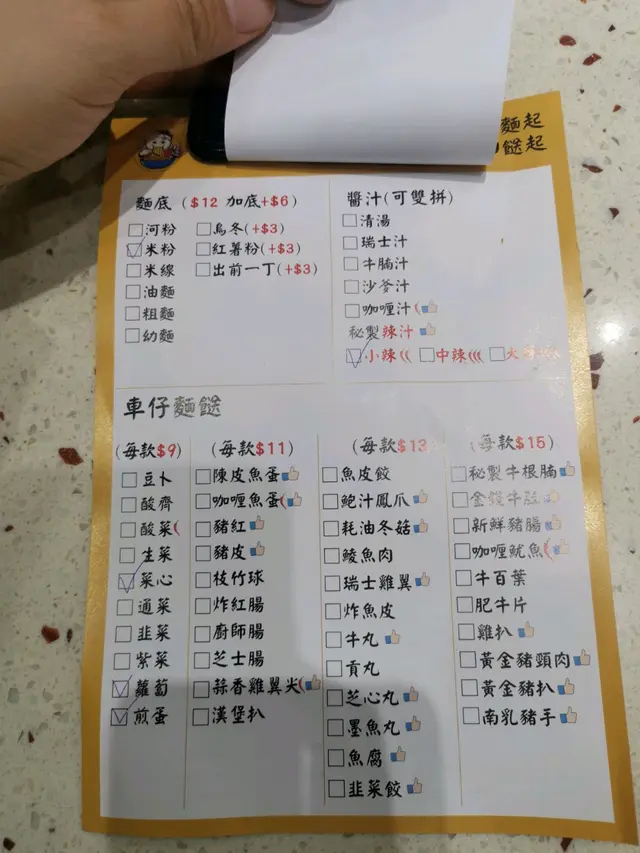 麵起
餸起
麵底 ($12 加底+$6)
河粉 烏冬(+$3)
米粉 紅薯粉(+$3)
米線 出前一丁(+$3)
油麵
粗麵
幼麵
醬汁(可雙拼)
清湯
瑞士汁
牛腩汁
沙爹汁
咖喱汁
秘製辣汁
小辣 中辣 大辣
車仔麵餸
(每款$9)
豆卜
酸齊
酸菜
生菜
菜心
通菜
韭菜
紫菜
蘿蔔
煎蛋
(每款$11)
陳皮魚蛋
咖喱魚蛋
豬紅
豬皮
枝竹球
炸紅腸
廚師腸
芝士腸
蒜香雞翼尖
漢堡扒
(每款$13)
魚皮餃
鮑汁鳳爪
耗油冬菇
鯪魚肉
瑞士雞翼
炸魚皮
牛丸
貢丸
芝心丸
墨魚丸
魚腐
韭菜餃
(每款$15)
秘製牛根腩
金錢牛𦟌
新鮮豬腸
咖喱魷魚
牛百葉
肥牛片
雞扒
黃金豬頸肉
黃金豬扒
南乳豬手